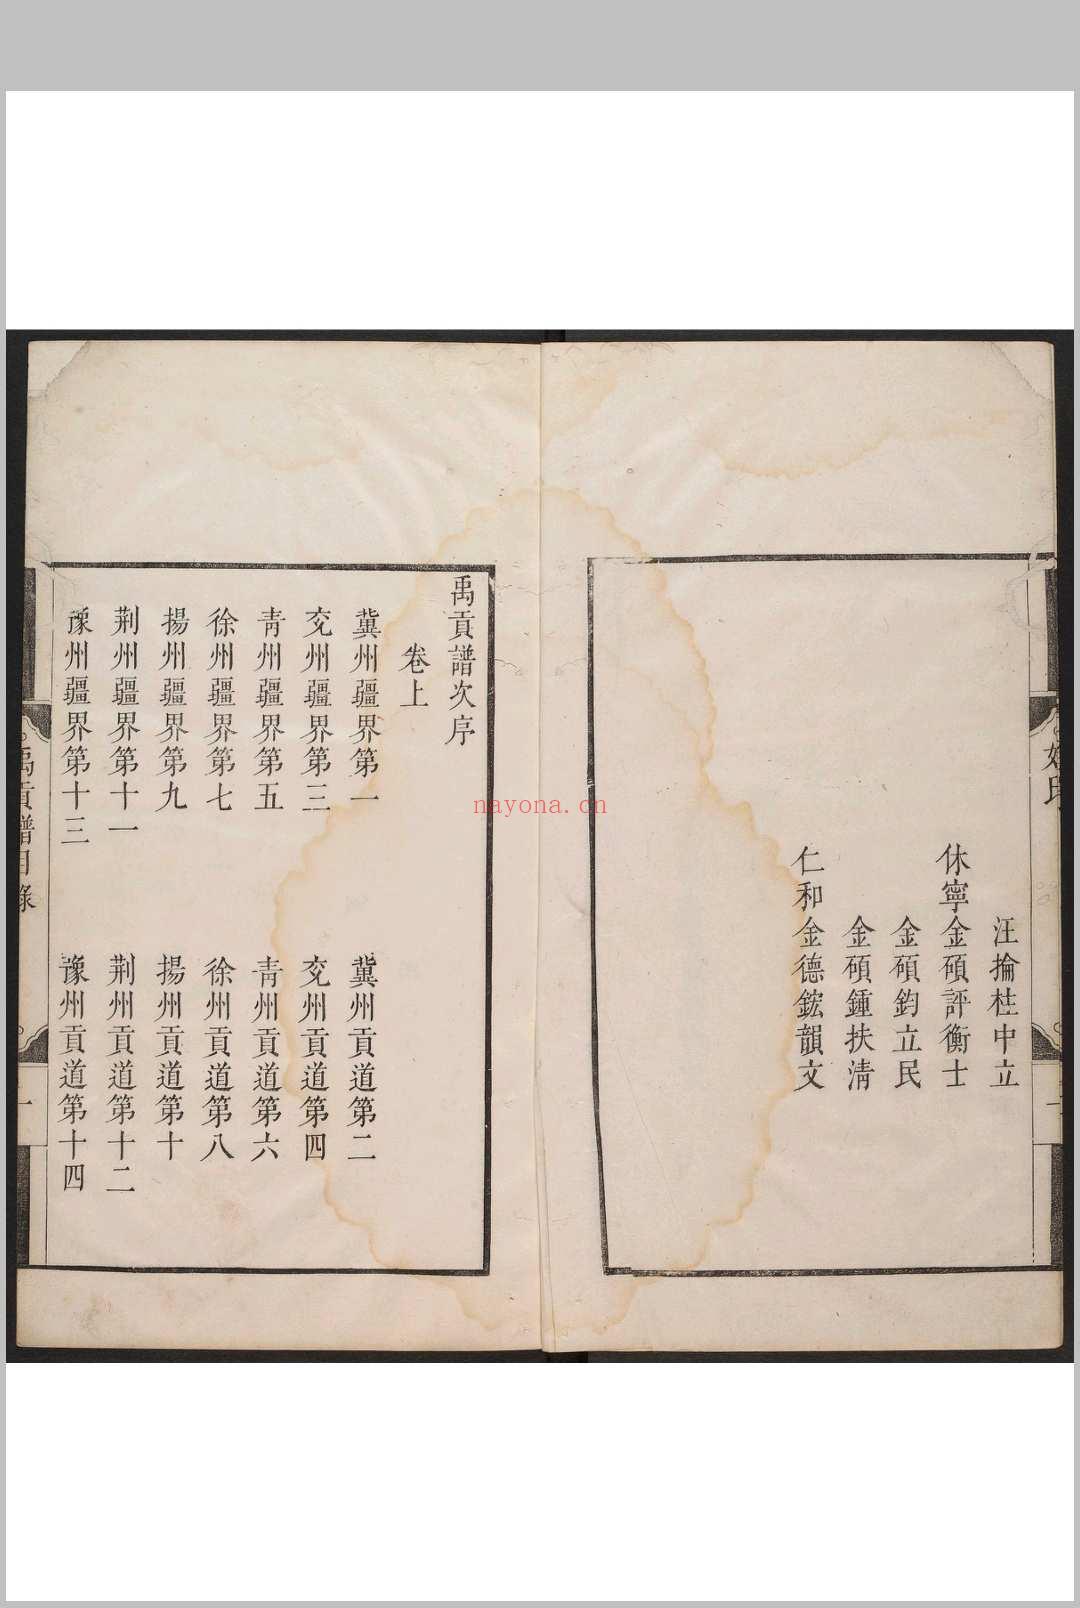 姓氏
汪掄桂中立
休寧金碩評衡士
金碩鈞立民
金碩鍾扶淸
仁和金德鋐韻文
禹貢譜次序
卷上
冀州疆界第一
冀州貢道第二
兗州疆界第三
兗州貢道第四
靑州疆界第五
靑州貢道第六
徐州疆界第七
徐州貢道第八
揚州疆界第九
揚州貢道第十
荆州疆界第十一
荆州貢道第十二
豫州疆界第十三
豫州貢道第十四
禹貢譜目錄
一
nayona.cn